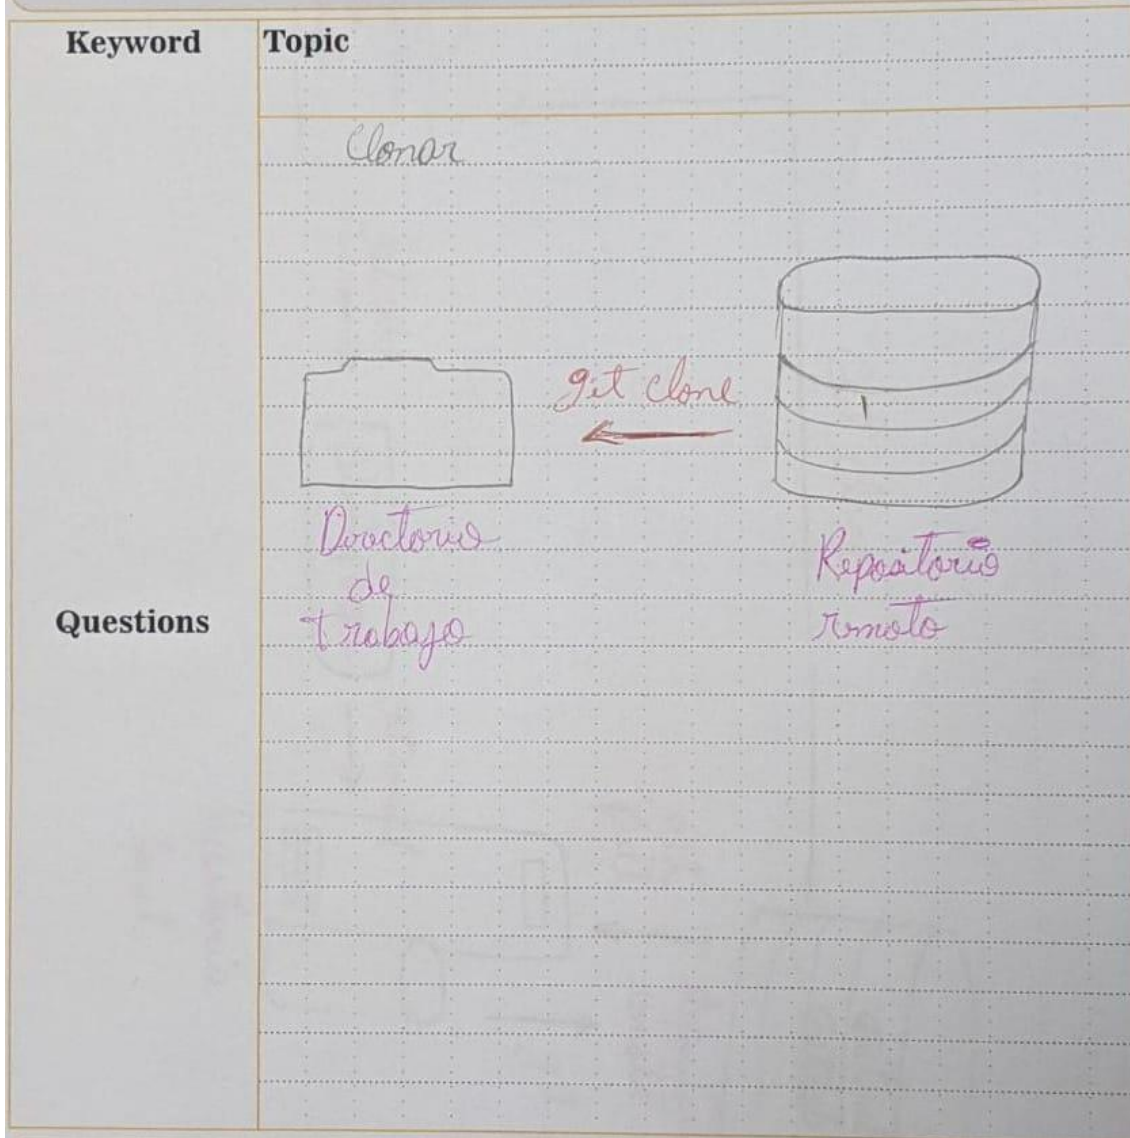 Keyword
Topic
Clonar
git clone
Directorio
de
trabajo
Repositorio
remoto
Questions